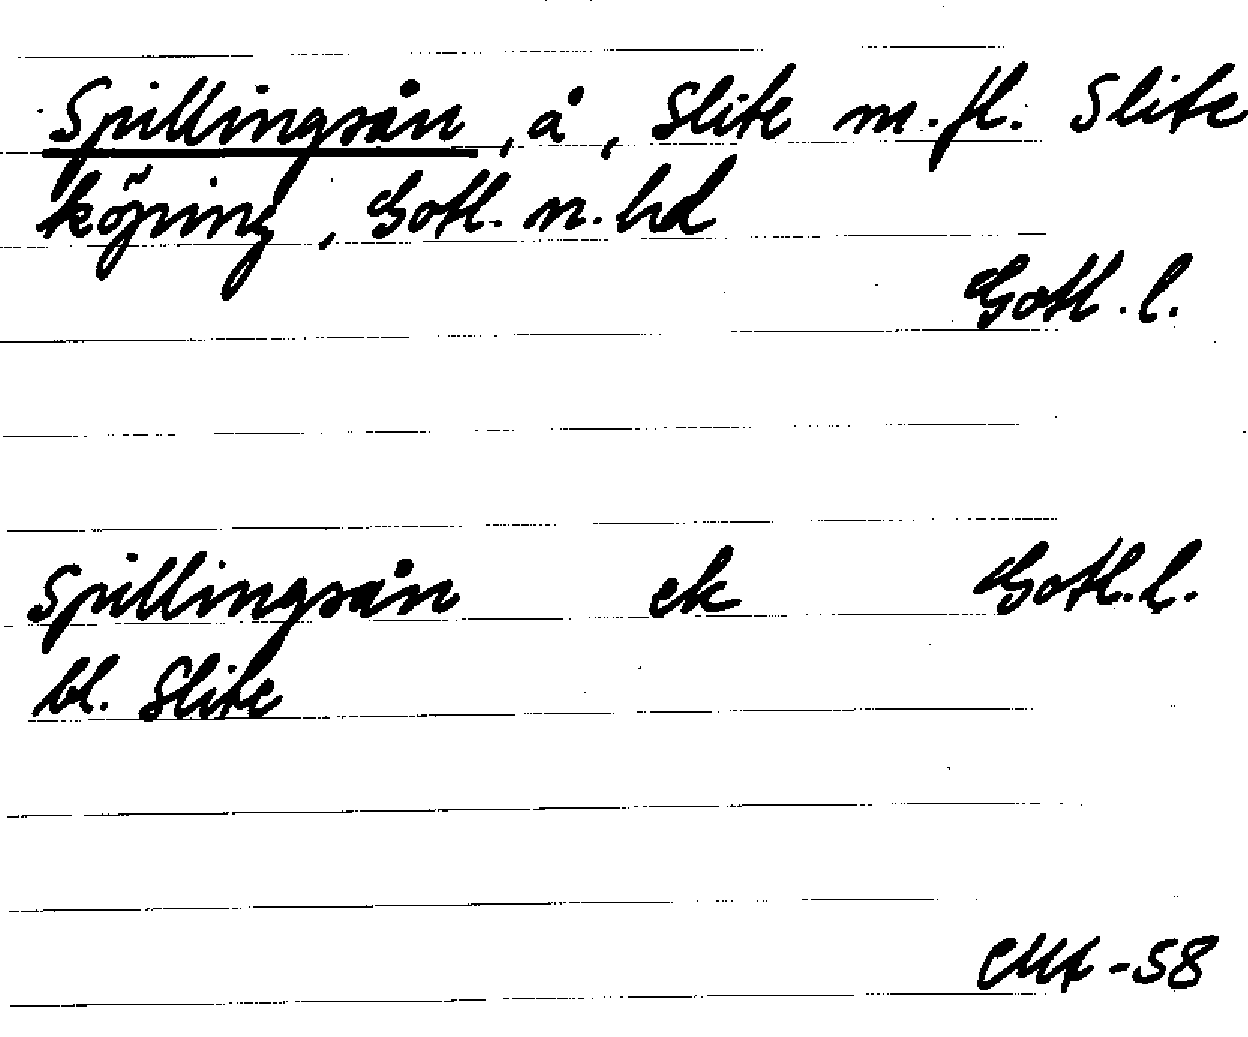 Spillingsån, å, Slite m.fl. Slite
köping, Gotl. n. hd
Gotl. l.
Spillingsån ek Gotl. l.
bl. Slite
-58